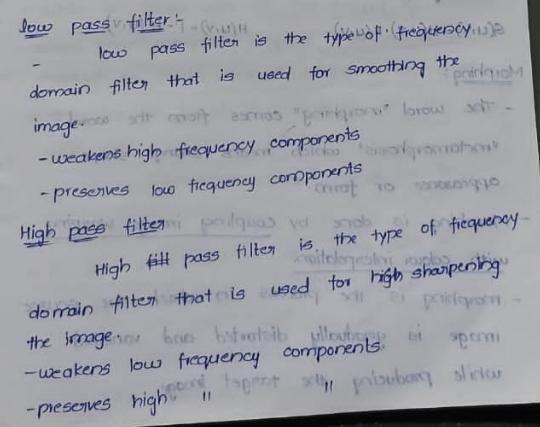 low pass filter:-
- low pass filter is the type of frequency
domain filter that is used for smoothing the
image.
- weakens high frequency components
- preserves low frequency components
High pass filter
High pass filter is the type of frequency
domain filter that is used for high sharpening
the image.
- weakens low frequency components.
- preserves high " "